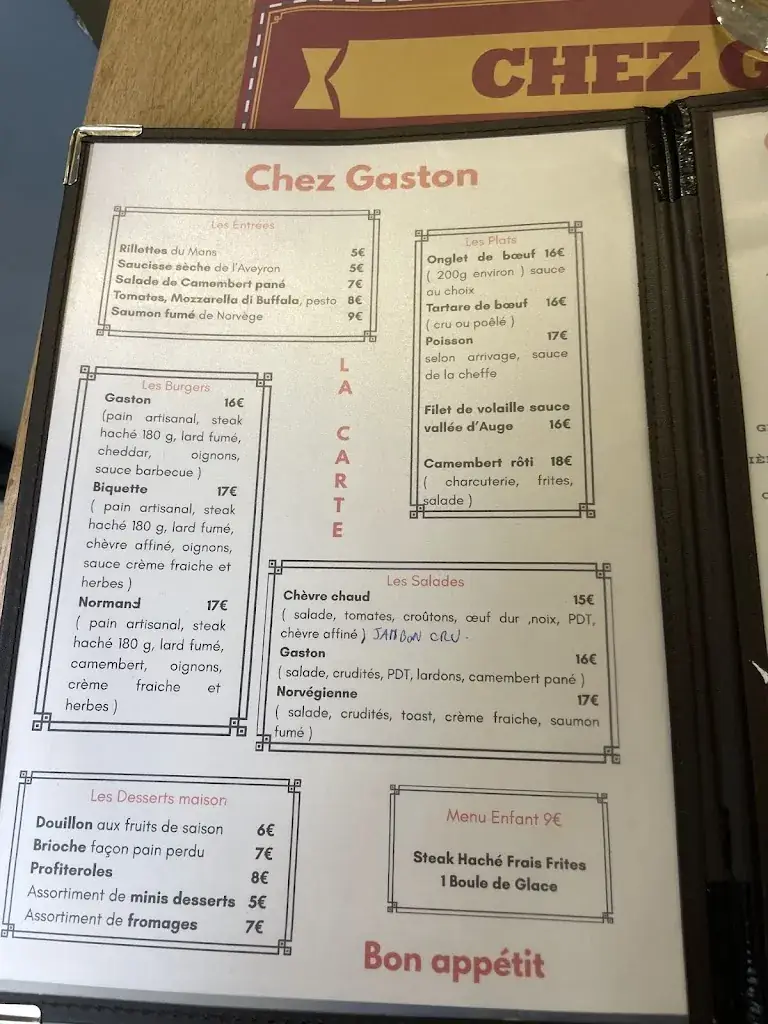 CHEZ G
Chez Gaston
Les Entrées
Rillettes du Mans 5€
Saucisse sèche de l'Aveyron 5€
Salade de Camembert pané 7€
Tomates, Mozzarella di Buffala, pesto 8€
Saumon fumé de Norvège 9€
Les Plats
Onglet de bœuf 16€
( 200g environ ) sauce
au choix
Tartare de bœuf 16€
( cru ou poêlé )
Poisson 17€
selon arrivage, sauce
de la cheffe
Filet de volaille sauce
vallée d'Auge 16€
Camembert rôti 18€
( charcuterie, frites,
salade )
LA CARTE
Les Burgers
Gaston 16€
(pain artisanal, steak
haché 180 g, lard fumé,
cheddar, oignons,
sauce barbecue )
Biquette 17€
( pain artisanal, steak
haché 180 g, lard fumé,
chèvre affiné, oignons,
sauce crème fraiche et
herbes )
Normand 17€
( pain artisanal, steak
haché 180 g, lard fumé,
camembert, oignons,
crème fraiche et
herbes )
Les Salades
Chèvre chaud 15€
( salade, tomates, croûtons, œuf dur ,noix, PDT,
chèvre affiné ) JAMBON CRU.
Gaston 16€
( salade, crudités, PDT, lardons, camembert pané )
Norvégienne 17€
( salade, crudités, toast, crème fraiche, saumon
fumé )
Les Desserts maison
Douillon aux fruits de saison 6€
Brioche façon pain perdu 7€
Profiteroles 8€
Assortiment de minis desserts 5€
Assortiment de fromages 7€
Menu Enfant 9€
Steak Haché Frais Frites
1 Boule de Glace
Bon appétit